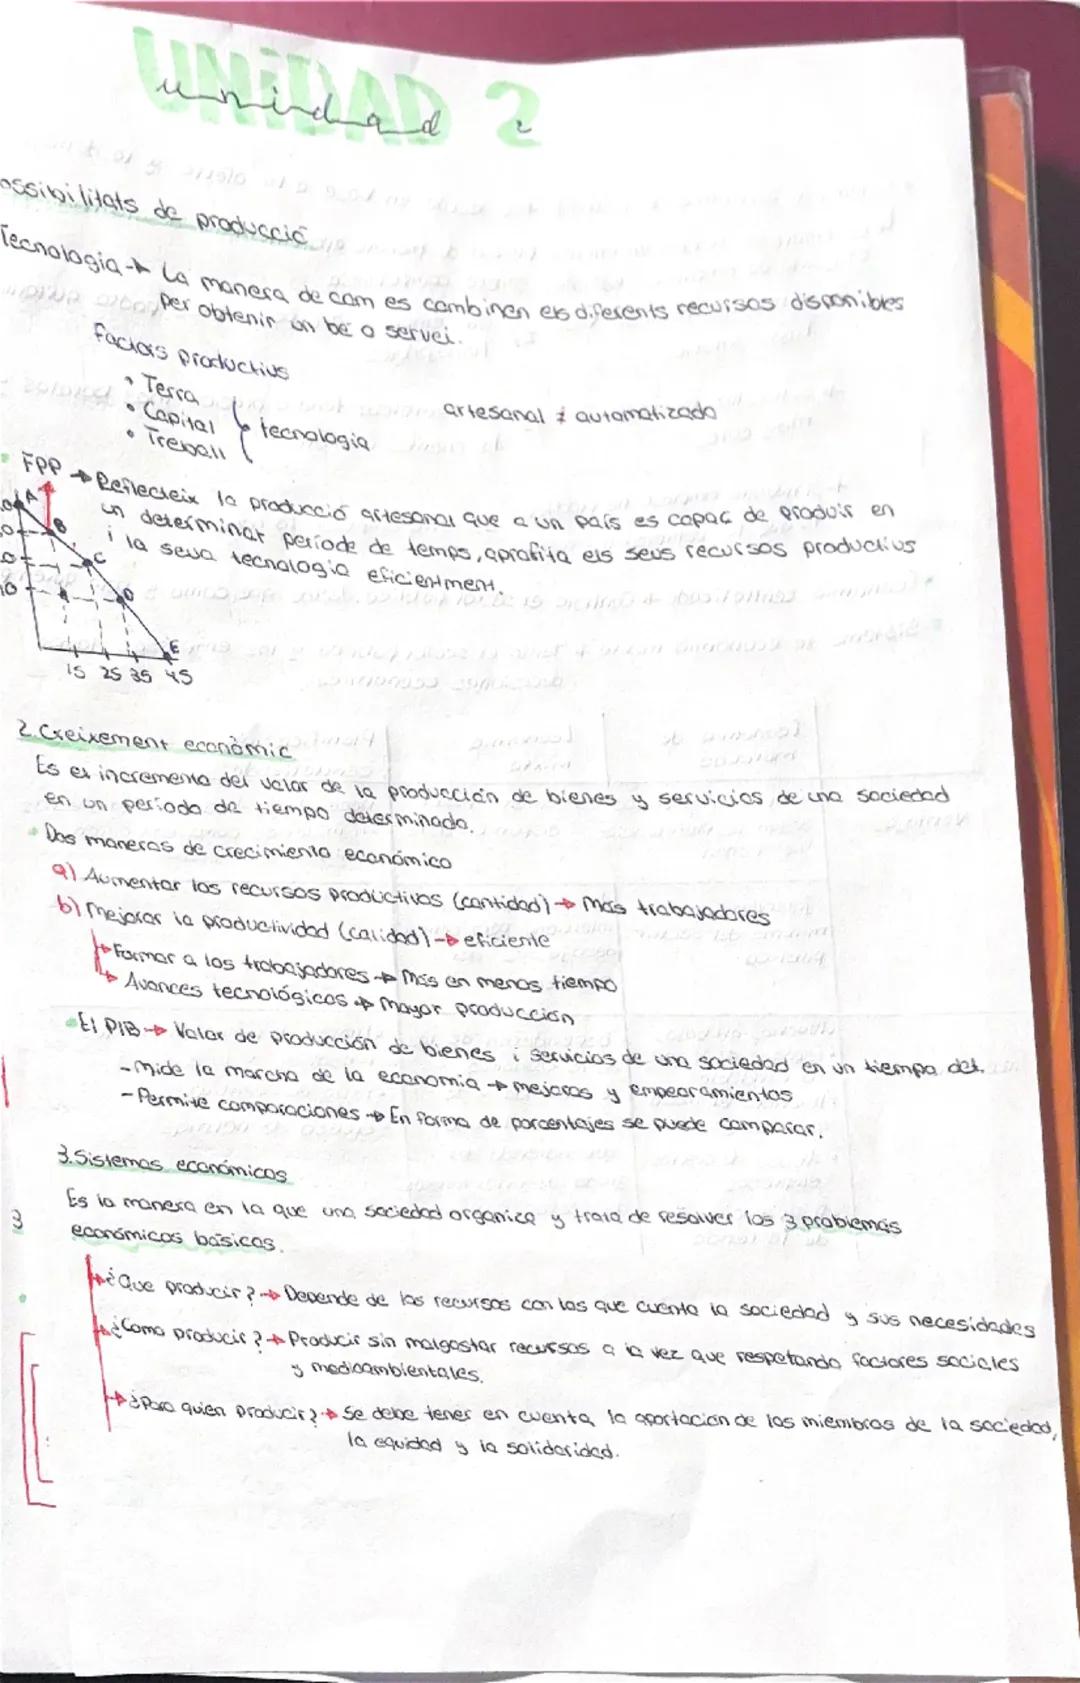 UNIDAD 2
unidad 2
ossibilitats de producció
Tecnologia → La manera de com es combinen els diferents recursos disponibles
per obtenir un be o servei.
factors productius
• Terra
• Capital
• Treball
tecnologia
artesanal ≠ automatizado
• FPP → Reflecteix la producció artesanal que a un país es capaç de produir en
un determinat període de temps, aprofita els seus recursos productius
i la seva tecnologia eficientment.
A
B
C
D
E
15 25 35 45
2. Creixement econòmic
Es el incremento del valor de la producción de bienes y servicios de una sociedad
en un periodo de tiempo determinado.
• Dos maneras de crecimiento económico
a) Aumentar los recursos productivos (cantidad) → Más trabajadores
b) Mejorar la productividad (calidad) → eficiente
→ Formar a los trabajadores → Más en menos tiempo
→ Avances tecnológicos → Mayor producción
• El PIB → Valor de producción de bienes i servicios de una sociedad en un tiempo det.
- Mide la marcha de la economia → mejoras y empeoramientos
- Permite comparaciones → En forma de porcentajes se puede comparar.
3. Sistemas económicos
Es la manera en la que una sociedad organiza y trata de resolver los 3 problemas
económicos básicos.
→ ¿Que producir? → Depende de los recursos con los que cuenta la sociedad y sus necesidades
→ ¿Como producir? → Producir sin malgastar recursos a la vez que respetando factores sociales
y medioambientales.
→ ¿Para quien producir? → Se debe tener en cuenta la aportacion de los miembros de la sociedad,
la equidad y la solidaridad.
3